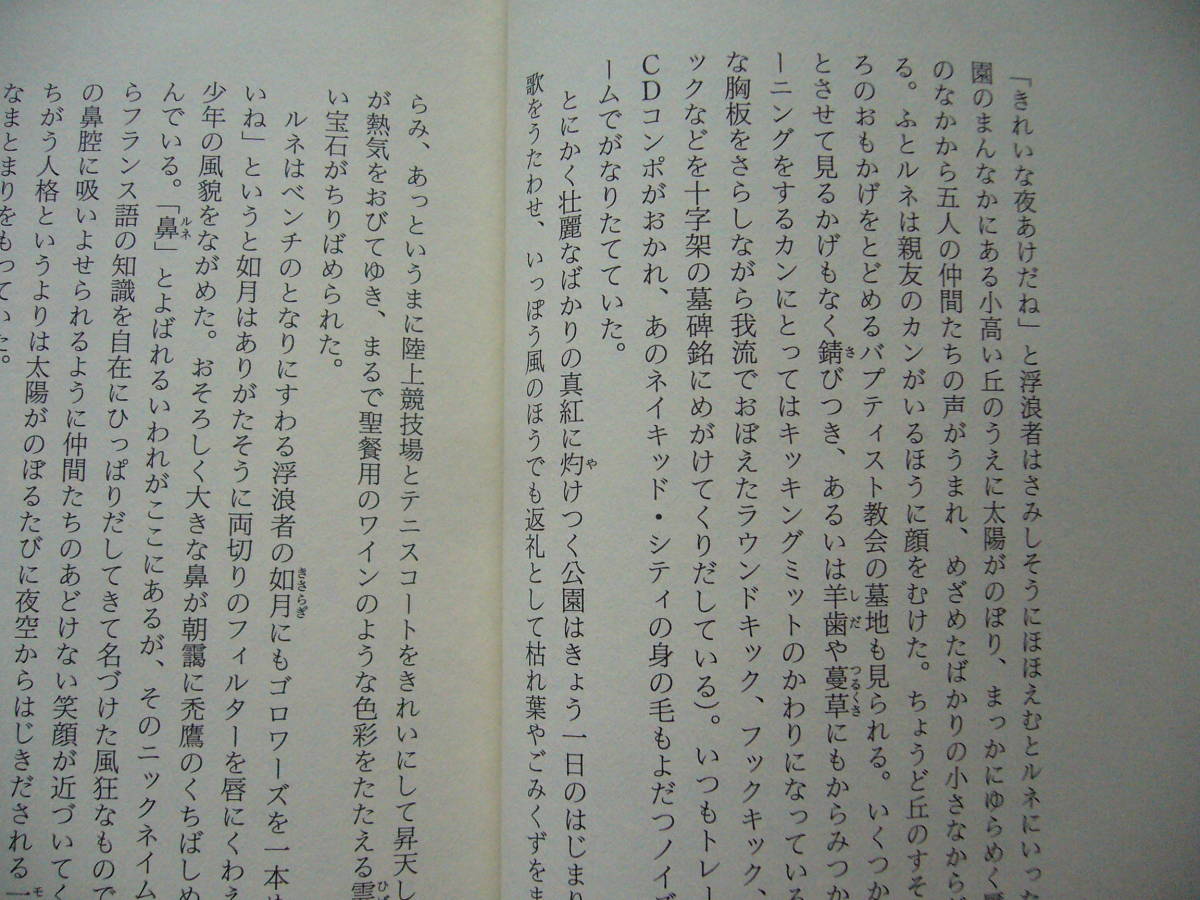 「きれいな夜あけだね」と浮浪者はさみしそうにほほえむとルネにいった
園のまんなかにある小高い丘のうえに太陽がのぼり、まっかにゆらめく
のなかから五人の仲間たちの声がうまれ、めざめたばかりの小さなからだ
る。ふとルネは親友のカンがいるほうに顔をむけた。ちょうど丘のすそ
ろのおもかげをとどめるバプティスト教会の墓地も見られる。いくつか
とさせて見るかげもなく錆びつき、あるいは羊歯や蔓草にもからみつか
ーニングをするカンにとってはキッキングミットのかわりになっている
な胸板をさらしながら我流でおぼえたラウンドキック、フックキック、
ックなどを十字架の墓碑銘にめがけてくりだしている)。いつもトレー
CDコンポがおかれ、あのネイキッド・シティの身の毛もよだつノイズ
ームでがなりたてていた。
とにかく壮麗なばかりの真紅に灼けつく公園はきょう一日のはじまり
歌をうたわせ、いっぽう風のほうでも返礼として枯れ葉やごみくずをま
らみ、あっというまに陸上競技場とテニスコートをきれいにして昇天し
が熱気をおびてゆき、まるで聖餐用のワインのような色彩をたたえる雲
い宝石がちりばめられた。
ルネはベンチのとなりにすわる浮浪者の如月にもゴロワーズを一本
いね」というと如月はありがたそうに両切りのフィルターを唇にくわえ
少年の風貌をながめた。おそろしく大きな鼻が朝靄に禿鷹のくちばしめ
んでいる。「鼻」とよばれるいわれがここにあるが、そのニックネイム
らフランス語の知識を自在にひっぱりだしてきて名づけた風狂なもので
の鼻腔に吸いよせられるように仲間たちのあどけない笑顔が近づいてく
ちがう人格というよりは太陽がのぼるたびに夜空からはじきだされる一
なまとまりをもっていた。